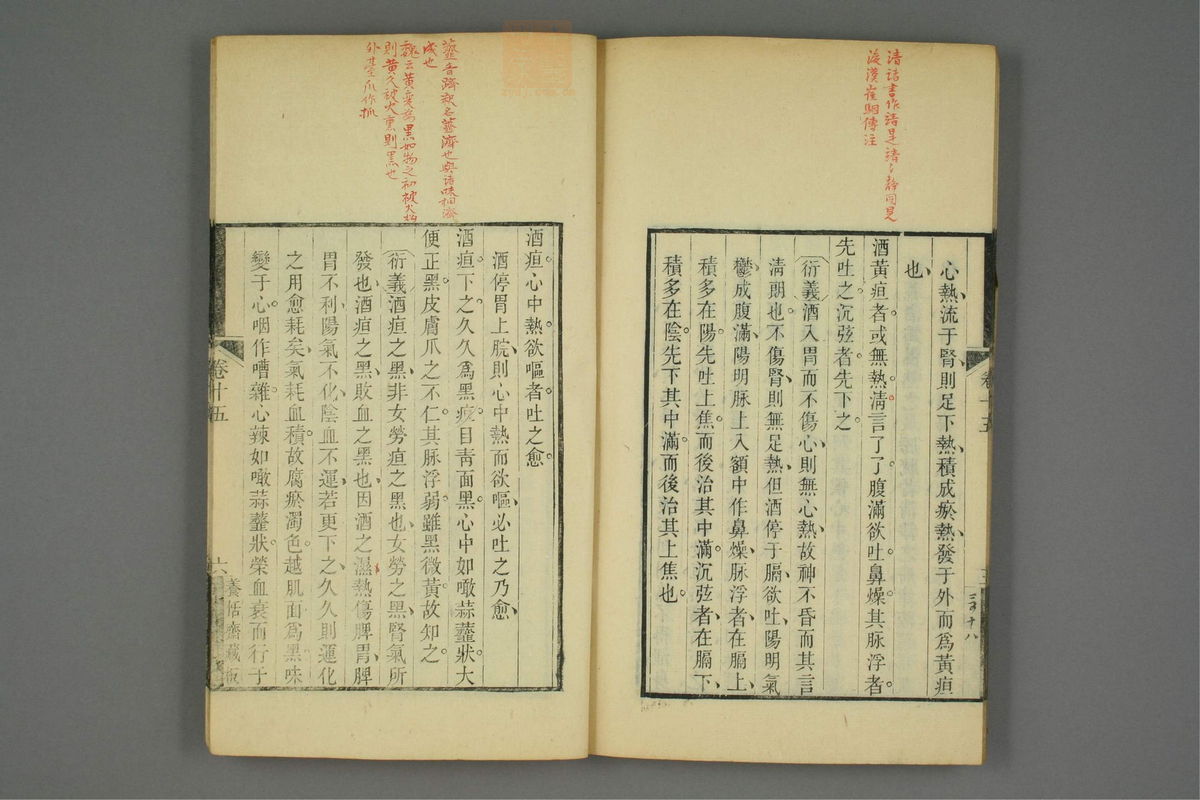 清諸書作諸是諸々靜同見
後漢崔駰傳注
心熱流于腎則足下熱積成瘀熱發于外而爲黃疸
也
酒黃疸者或無熱淸言了了腹滿欲吐鼻燥其脉浮者
先吐之沉弦者先下之
衍義酒入胃而不傷心則無心熱故神不昏而其言
淸朗也不傷腎則無足熱但酒停于膈欲吐陽明氣
鬱成腹滿陽明脉上入額中作鼻燥脉浮者在膈上
積多在陽先吐上焦而後治其中滿沉弦者在膈下
積多在陰先下其中滿而後治其上焦也
虀音躋
成也
魏云黃變爲黑如物之初被火灼
則黃久被火熏則黑也
外臺爪作抓
酒疸心中熱欲嘔者吐之愈
酒停胃上脘則心中熱而欲嘔必吐之乃愈
酒疸下之久久爲黑疸目靑面黑心中如噉蒜虀狀大
便正黑皮膚爪之不仁其脉浮弱雖黑微黃故知之
衍義酒疸之黑非女勞疸之黑也女勞之黑腎氣所
發也酒疸之黑敗血之黑也因酒之濕熱傷脾胃脾
胃不利陽氣不化陰血不運若更下之久久則運化
之用愈耗矣氣耗血積故腐瘀濁色越肌面爲黑味
變于心咽作嘈雜心辣如噉蒜虀狀榮血衰而行于
卷十五
六
養恬齋藏板